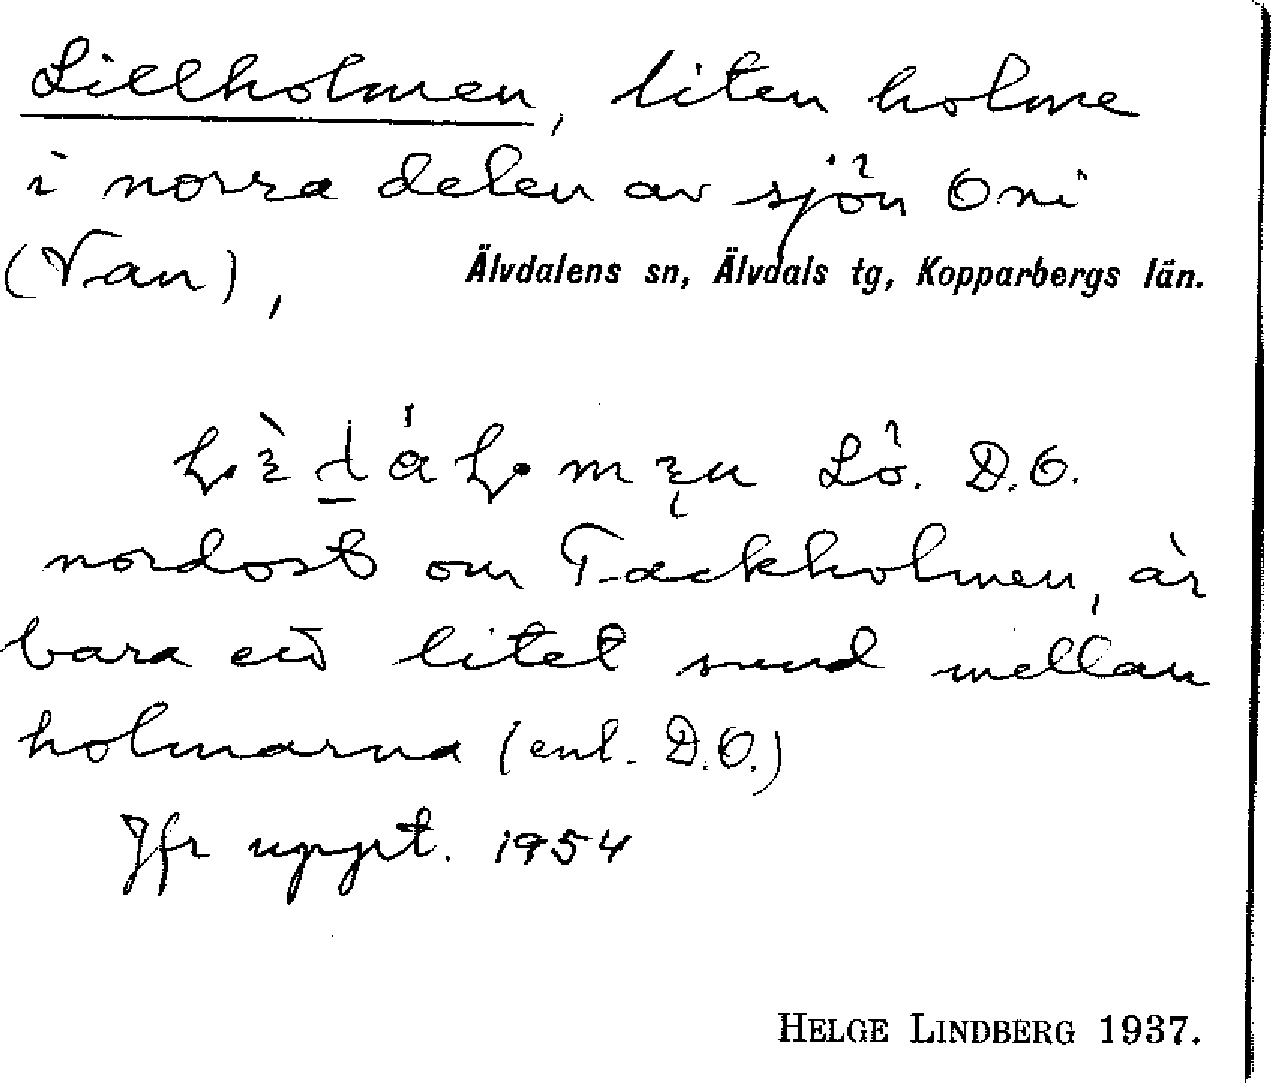 Lillholmen, liten holme
i norra delen av sjön Oni
(Van), Älvdalens sn, Älvdals tg, Kopparbergs län.
Lö. D.O.
nordost om Täckholmen, är
bara ett litet sund mellan
holmarna (enl. D.O.)
Jfr uppt. 1954
HELGE LINDBERG 1937.